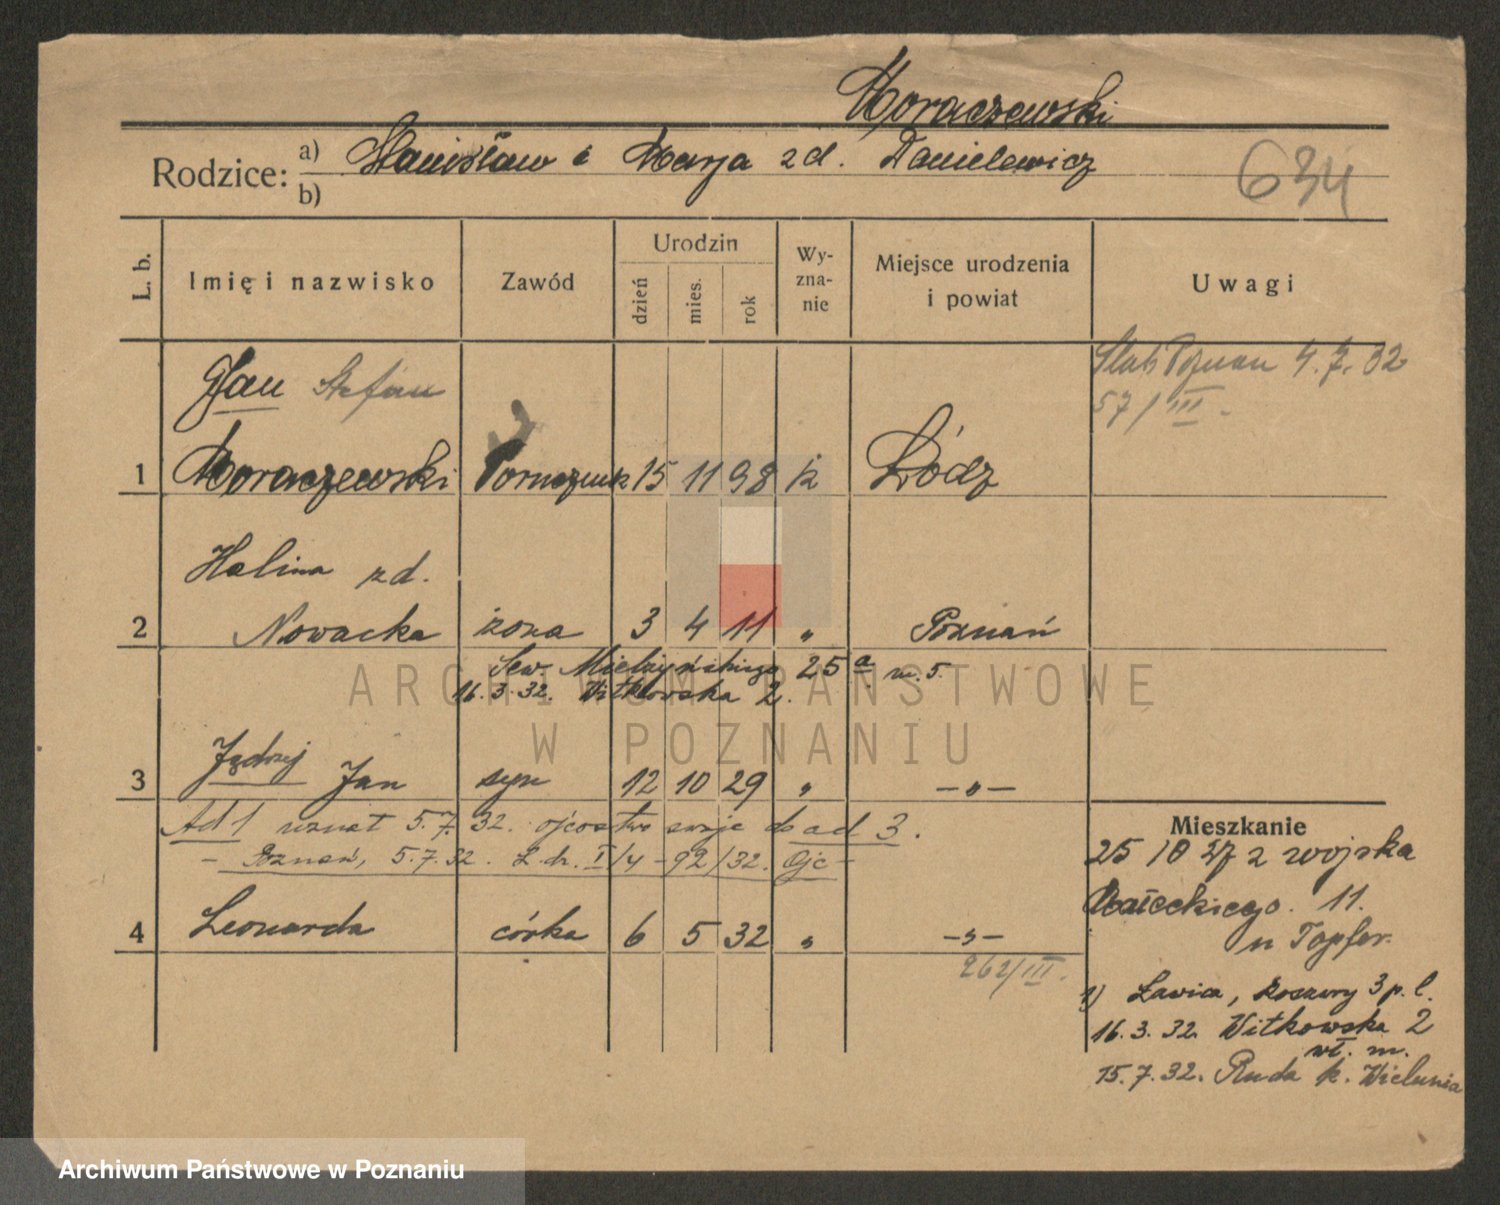 Moraczewski
Rodzice: a) Stanisław i Marja zd. Danielewicz
b)
634
L. b.
Imię i nazwisko
Zawód
Urodzin
dzień
mies.
rok
Wy-
zna-
nie
Miejsce urodzenia
i powiat
Uwagi
Ślub Poznań 4.7.32
57/III -
Jan Stefan
1 Moraczewski Porucznik 15 11 98 k Łódz
Halina zd.
2 Nowacka żona 3 4 11 " Poznań
Sew. Mielżyńskiego 25a m. 5.
16.3.32. Witkowska 2.
ARCHIWUM PAŃSTWOWE
W POZNANIU
3 Jędrzej Jan syn 12 10 29 " -"-
Ad 1 uznał 5.7.32. ojcostwo swoje do ad 3.
- Poznań, 5.7.32. L. dz. I/4-92/32. Ojc -
4 Leonarda córka 6 5 32 " -"-
262/III.
Mieszkanie
25 10 27 z wojska
Małeckiego. 11.
u Topfer.
1) Ławica, koszary 3 p. l.
16.3.32. Witkowska 2
wł. m.
15.7.32. Ruda k. Wielunia
Archiwum Państwowe w Poznaniu